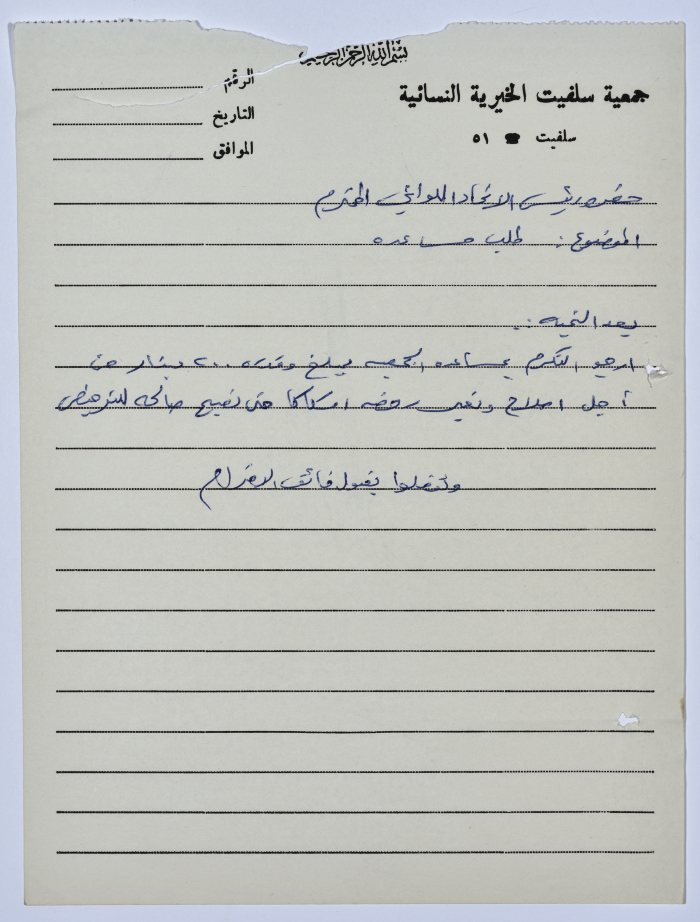 بسم الله الرحمن الرحيم
جمعية سلفيت الخيرية النسائية
سلفيت ☎ ٥١
الرقم
التاريخ
الموافق
حضرة رئيس الاتحاد اللوائي المحترم
الموضوع : طلب مساعده
بعد التحيه :.
ارجو التكرم بمساعده الجمعيه بمبلغ وقدره ٢٠٠ دينار من
أجل اصلاح وتغير روضه اسكاكا حتى تصبح صالحه للترخيص
وتفضلوا بقبول فائق الاحترام